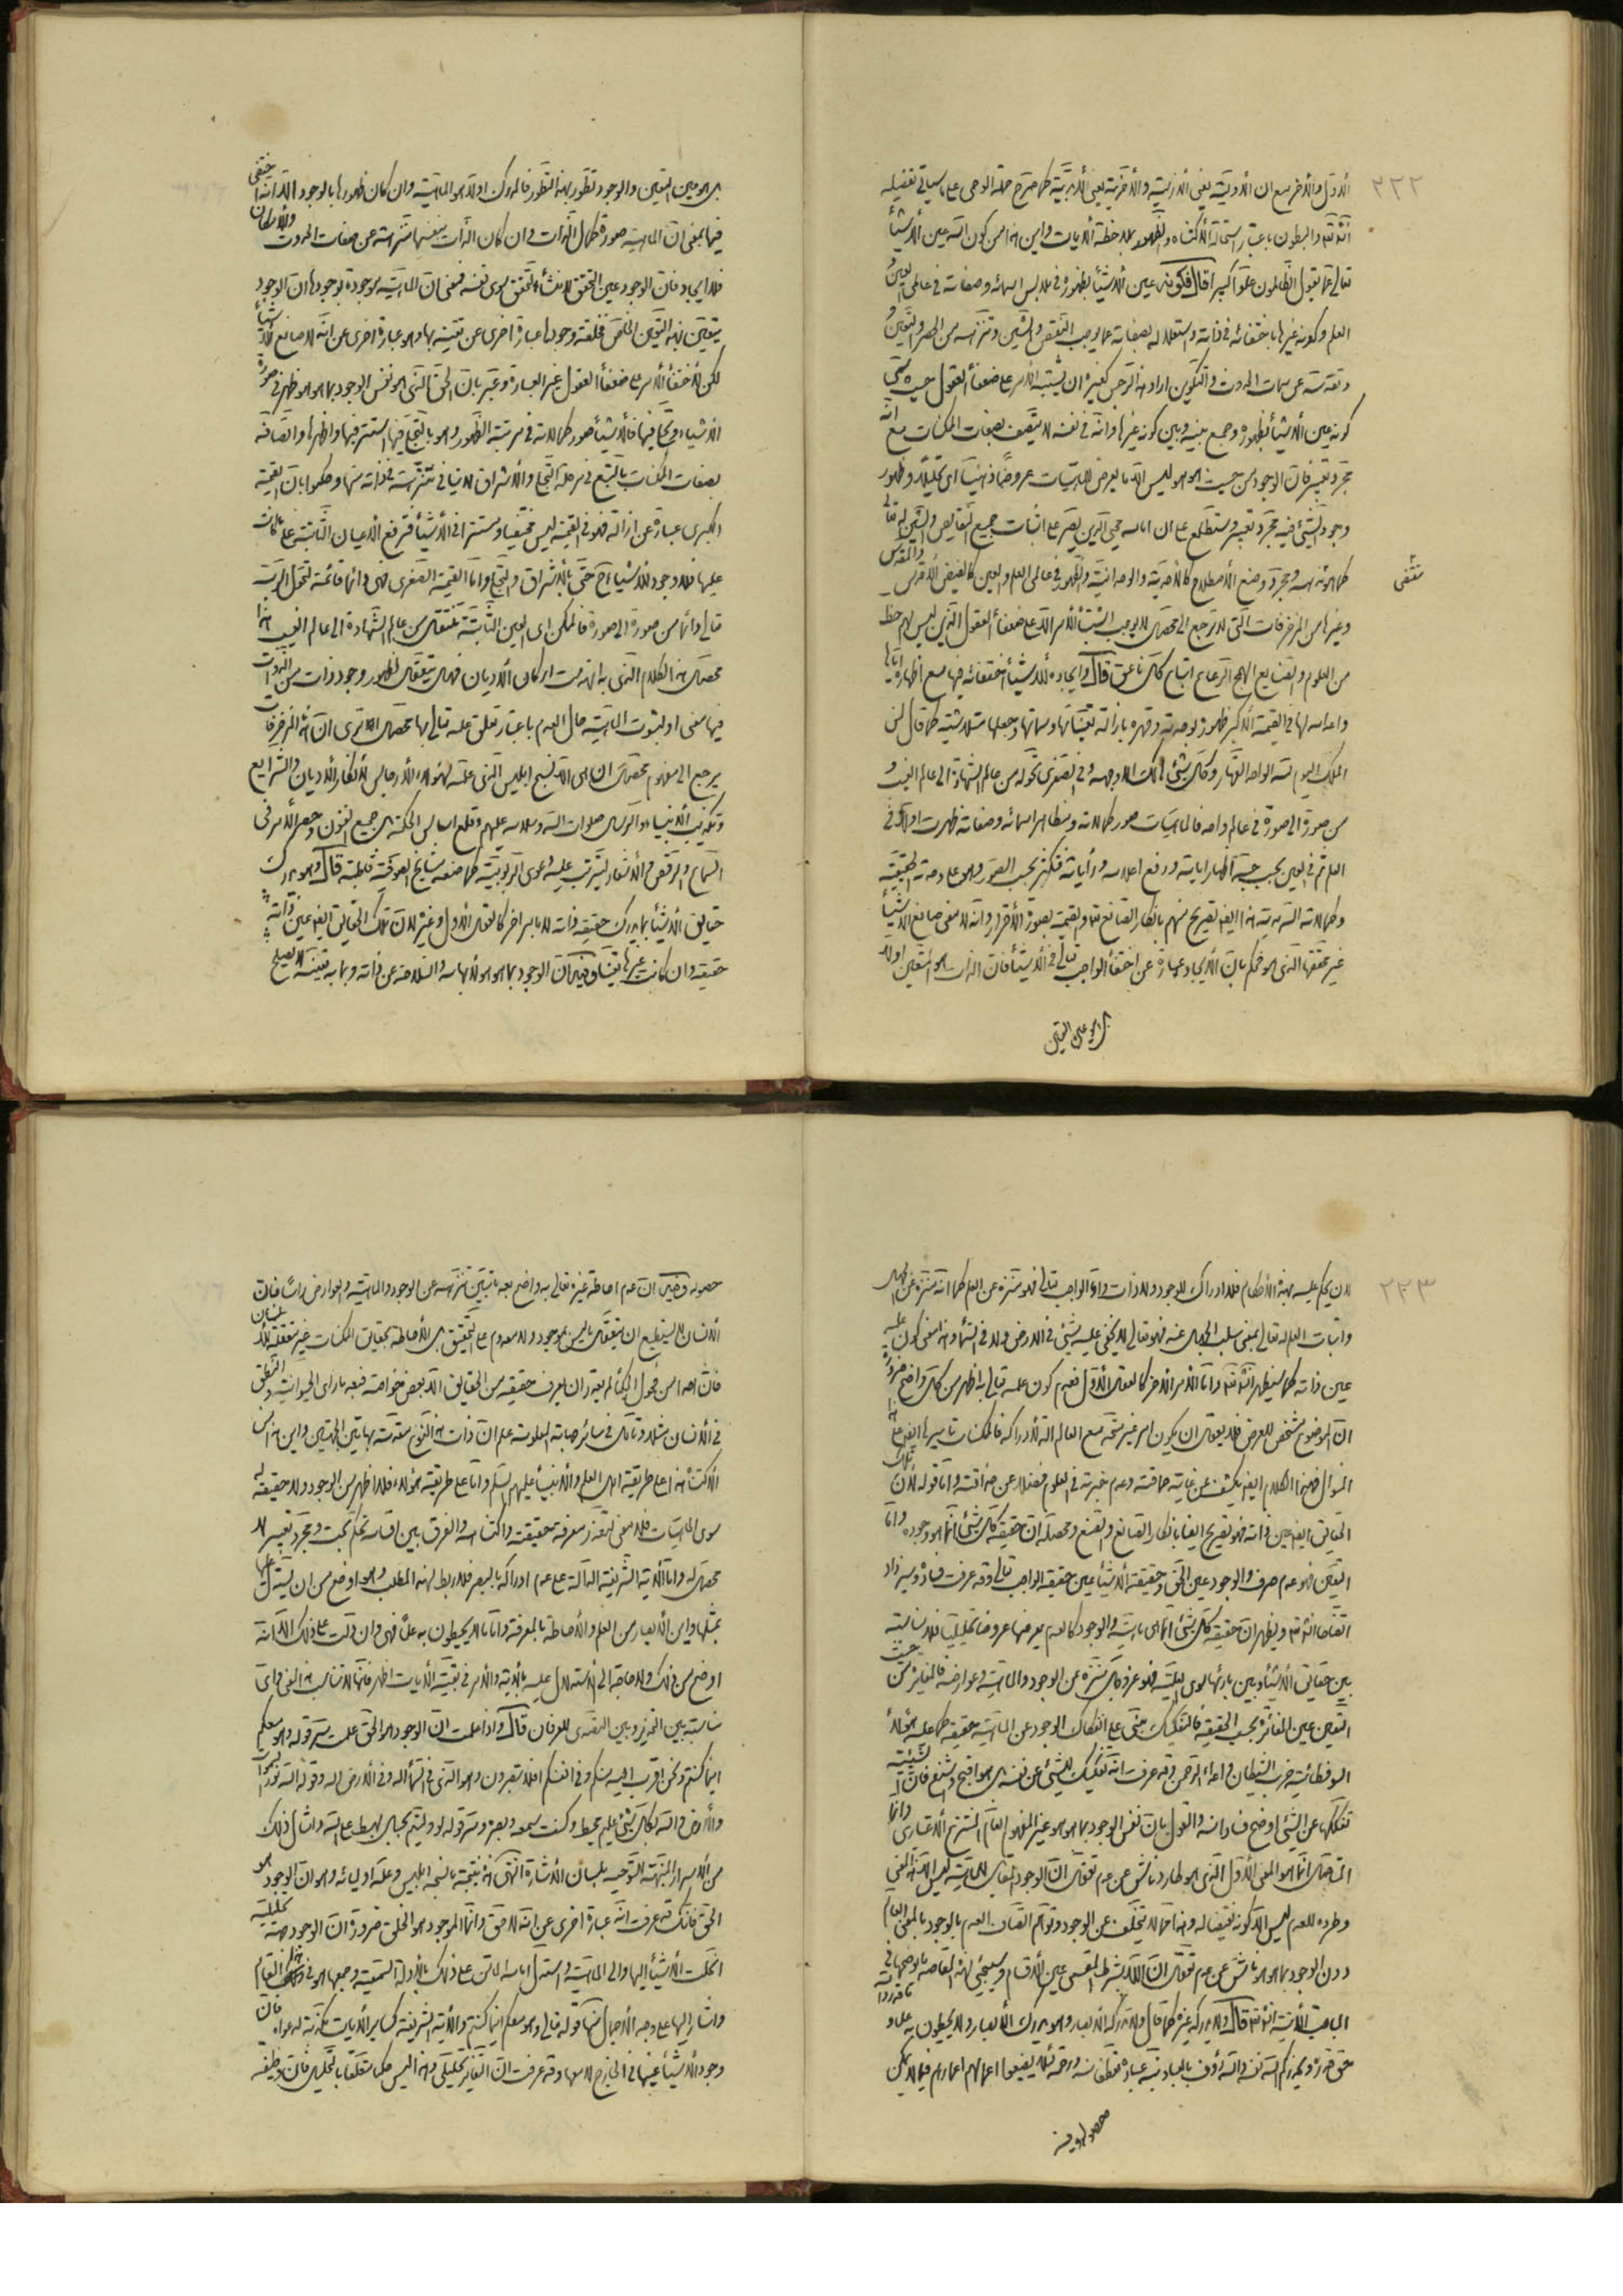 ٢٢٢
الأول والآخر مع ان الأولية يعنى الأزلية والآخرية يعنى الأبدية كما صرح حملة الوحى على ما سيأتى تفصيله
انشاء الله والبطون باعتبار استحالة الاكتناه والظهور بملاحظة الآيات واين هذا من كون الله عين الأشياء
تعالى عما يقول الظالمون علوا كبيرا قال فكونه عين الأشياء بظهوره فى ملابس اسمائه وصفاته فى عالمى العين و
العلم وكونه غيرها باختفائه فى ذاته واستعلائه بصفاته عما يوجب النقص والشين وتنزهه من الحصر والتعين و
تقدسه عن سمات الحدوث والتكوين اراد هذا الرجس كغيره ان يشتبه الأمر على ضعفاء العقول حيث سمى
كونه عين الأشياء بظهوره وجمع بينه وبين كونه غيرها وانه فى نفسه لا يتصف بصفات الممكنات مع انه
مجرد تعبير فان الوجود من حيث هو هو ليس الا ما يعرض للماهيات عروضا ذهنيا اى تحليلا وظهور
وجود الشىء فيه مجرد تعبير وستطلع على ان امامه محيى الدين يصر على اثبات جميع النقايص والشين له تعالى
كما هو مذهبه ومجرد وضع الاصطلاح كالأحدية والواحدانية والظهور فى عالمى العلم والعين كالفيض الأقدس والمقدس
وغيرها من المزخرفات التى لا ترجع الى محصل لا يوجب اشتباه الأمر الا على ضعفاء العقول الذين ليس لهم حظ
من العلوم والصنايع الهمج الرعاع اتباع كل ناعق قال وايجاده للأشياء اختفائه فيها مع اظهاره اياها
واعدامه لها فى القيمة الكبرى ظهوره بوحدته وقهره بازالة تعيناتها وسماتها وجعلها متلاشية كما قال لمن
الملك اليوم لله الواحد القهار وكل شىء هالك الا وجهه وفى الصغرى تحوله من عالم الشهادة الى عالم الغيب و
من صورة الى صورة فى عالم واحد فالماهيات صور كمالاته ومظاهر اسمائه وصفاته ظهرت اولا فى
العلم ثم فى العين بحسب حبه اظهار اياته ورفع اعلامه ورأياته فتكثر بحسب الصور وهو على وحدته الحقيقية
وكمالاته السرمدية هذا ايضا تصريح منهم بانكار الصانع تعالى والقيمة بصورة الاقرار وانه لا معنى صانع للأشياء
غير تحققها الذى هو محكم بان الايجاد عبارة عن اختفاء الواجب تعالى فى الأشياء فان الذات هو المتعين اولا
بل هو عين التعين
بل هو عين التعين والوجود تطور بهذا التطور فالمدرك اولا هو الماهية وان كان ظهورها بالوجود الا انه اختفى
فيها بمعنى ان الماهية صورة كمال الذات وان كان الذات بنفسها متنزهة عن صفات الحدوث والامكان
فلا ايجاد فان الوجود عين التحقق لا منشأ لتحقق سوى نفسه فمعنى ان الماهية موجودة بوجودها ان الوجود
يتعين بهذا التعين الخاص فخلقه وجودا عبارة اخرى عن تعينه بها وهو عبارة اخرى عن انه لا صانع للأشياء
لكن لاختفاء الأمر على ضعفاء العقول غير العبارة وعبر بان الحق الذى هو نفس الوجود بما هو هو ظهر فى صورة
الأشياء وتجلى فيها فالأشياء صور كمالاته فى مرتبة الظهور وهو بالتجلى فيها استتر فيها واظهرها واتصافه
بصفات الممكنات بالتبع فى مرحلة التجلى والاشراق لا ينافى تنزهه فى ذاته منها وحكموا بان القيمة
الكبرى عبارة عن ازالته فهو فى القيمة ليس مختفيا ومستترا فى الأشياء فترفع الأعيان الثابتة على ما كانت
عليها فلا وجود للأشياء ح حتى بالاشراق والتجلى واما القيمة الصغرى فهى دائما قائمة لتحول الرب
تعالى دائما من صورة الى صورة فالممكن اى العين الثابتة تنتقل من عالم الشهادة الى عالم الغيب هذا
محصل هذا الكلام الذى به انهدمت اركان الأديان فهل يتعقل لظهور وجود ذات من الذوات
فيها معنى او لثبوت الماهية حال العدم باعتبار تعلق علمه تعالى بها محصل الا ترى ان هذه المزخرفات
يرجع الى مفهوم محصل ان هى الا نسج ابليس الذى علمه لهؤلاء الأرجاس لانكار الأديان والشرايع
وتكذيب الأنبياء والرسل صلوات الله وسلامه عليهم وقلع اساس الحكمة بل جميع الفنون وحصر الأمر فى
السماع والرقص والأشعار ليترتب عليه دعوى الربوبية كما صنعه مشايخ الصوفية قاطبة قال وهو يدرك
حقايق الأشياء بما يدرك حقيقة ذاته لا بامر اخر كالعقل الأول وغيره لان تلك الحقايق ايضا عين ذاته
حقيقة وان كانت غيرها تعينا وفيه ان الوجود بما هو هو لا ابهام والسلامة عن ذاته وبما به تعينه لا يصلح
٢٢٣
لان يحكم عليه بهذه الأحكام فلا ادراك للوجود ولا ذات واما الواجب تعالى فهو متنزه عن العلم كما انه متنزه عن الجهل
واثبات العلم له تعالى بمعنى سلب الجهل عنه فهو تعالى لا يخفى عليه شىء فى الأرض ولا فى السماء وهذا معنى كون علمه
عين ذاته كما سيظهر انشاء الله واما الأمر الآخر كالعقل الأول فعدم كون علمه تعالى به اظهر من كل واضح ضرورة
ان الموضوع مشخص للعرض فلا يعقل ان يكون امر غير متحد مع العالم الة لادراكه فالممكنات باسرها ايضا على هذا
المنوال فهذا الكلام ايضا يكشف عن غاية حماقته وعدم خبرته فى العلوم فضلا عن خرافته واما قوله لان تلك
الحقايق ايضا عين ذاته فهو تصريح ايضا بانكار الصانع والصنع ومحصله ان حقيقة كل شىء انما هو وجوده واما
التعين فهو عدم صرف والوجود عين الحق وحقيقة الأشياء عين حقيقة الواجب تعالى وقد عرفت فساده وسيزداد
اتضاحا انشاء الله ويظهر ان حقيقة كل شىء انما هى ماهيته والوجود كالعدم يعرضها عروضا تحليليا فلا مناسبة
بين حقايق الأشياء وبين بارئها سوى العلية فهو عز وجل متنزه عن الوجود والماهية وعوارضه فالمغاير من حيث
التعين عين المغايرة بحسب الحقيقة فالتفكيك مبنى على انفكاك الوجود عن الماهية حقيقة كما عليه هؤلاء
السوفسطائية حزب الشيطان واعداء الرحمن وقد عرفت انه تفكيك للشىء عن نفسه بل هو اقبح واشنع فان الشيئية
تفككها عن الشىء اوضح فسادا منه والقول بان نفس الوجود بما هو هو غير المفهوم العام المنتزع الاعتبارى وانما
المتحصل انما هو المعنى الأول الذى هو طارد ناش عن عدم تعقل ان الوجود المقابل للماهية ليس الا هذا المعنى
وطرده للعدم ليس الا كونه نقيضا له وهذا مما لا يتخلف عن الوجود وتوهم اتصاف العدم بالوجود بالمعنى العام
دون الوجود بما هو هو ناش عن عدم تعقل ان اللا بشرط المقسمى عين الأقسام وسيجىء لهذه المقاصد ما يوضحها فى
المباحث الآتية انشاء الله قال ولا يدركه غيره كما قال لا تدركه الأبصار وهو يدرك الأبصار ولا يحيطون به علما وما قدروا الله
حق قدره ويحذركم الله نفسه والله رؤف بالعباد نبه عباده تعطفا منه ورحمة لئلا يضيعوا اعمالهم اعمارهم فيما لا يمكن
حصوله وفيه
حصوله وفيه ان عدم احاطة غيره تعالى به واضح بعد ما تبين تنزهه عن الوجود والماهية والعوارض راسا فان
الانسان لا يستطيع ان يتعقل ما ليس بموجود ولا معدوم على التحقيق بل الاحاطة بحقايق الممكنات غير متفقة للانسان
فان احدا من فحول الحكماء لم يقدر ان يعرف حقيقة من الحقايق الا بعض خواصه فبعد ما راى الحيوانية والنطق
فى الانسان مثلا وتأمل فى سائر صفاته المعلومة علم ان ذات هذا النوع متقدمة بهاتين الجهتين واين هذا من
الاكتناه هذا على طريقة اهل العلم والأنبياء عليهم السلام واما على طريقة هؤلاء فلا اظهر من الوجود ولا حقيقة له
سوى الماهيات فلا معنى لتعذر معرفة حقيقته واكتناهه والفرق بين اقسامه تحكم بحت ومجرد تعبير لا
محصل له واما الآية الشريفة الدالة على عدم ادراكه بالبصر فلا ربط لهذا المطلب وهو اوضح من ان يستدل عليها
بمثلها واين الأبصار من العلم والاحاطة بالمعرفة واما ما لا يحيطون به علما فهى وان دلت على ذلك الا انه
اوضح من ذلك ولا حاجة الى الاستدلال عليه بالآية والأمر فى بقية الآيات اظهر فانها لا تناسب هذا المعنى واى
مناسبة بين التحذير وبين التصدى للعرفان قال واذا علمت ان الوجود هو الحق علمت سر قوله وهو معكم
اينما كنتم ونحن اقرب اليه منكم وفى انفسكم افلا تبصرون وهو الذى فى السماء اله وفى الأرض اله وقوله الله نور السموات
والأرض والله بكل شىء عليم محيط وكنت سمعه وبصره وسر قوله لو دليتم بحبل لهبط على الله وامثال ذلك
من الأسرار المنبهة للتوحيد بلسان الاشارة انتهى هذه نتيجة ما نسجه ابليس وعلمه اوليائه وهو ان الوجود هو
الحق فانك قد عرفت انه عبارة اخرى عن انه لا حق وانما الموجود هو الخلق ضرورة ان الوجود جهة تحليلية
انحلت الأشياء اليها والى الماهية واستدل امامه الماتن على ذلك بالأدلة السمعية وجمعها هو فى هذا المقام
واشار اليها على وجه الاجمال منها قوله تعالى وهو معكم اينما كنتم والآية الشريفة كساير الآيات مكذبة لدعواه فان
وجود الأشياء عينها فى الخارج لا معها وقد عرفت ان التغاير تحليلى وهذا ليس حكما متعلقا بالتحليل فان وظيفة